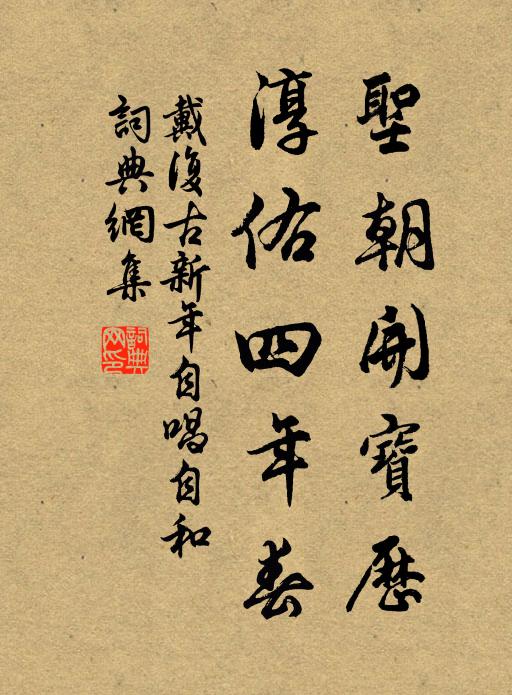 聖朝開寶歷
淳佑四年春
戴復古新年自唱自和
詞典網集
詞典网印